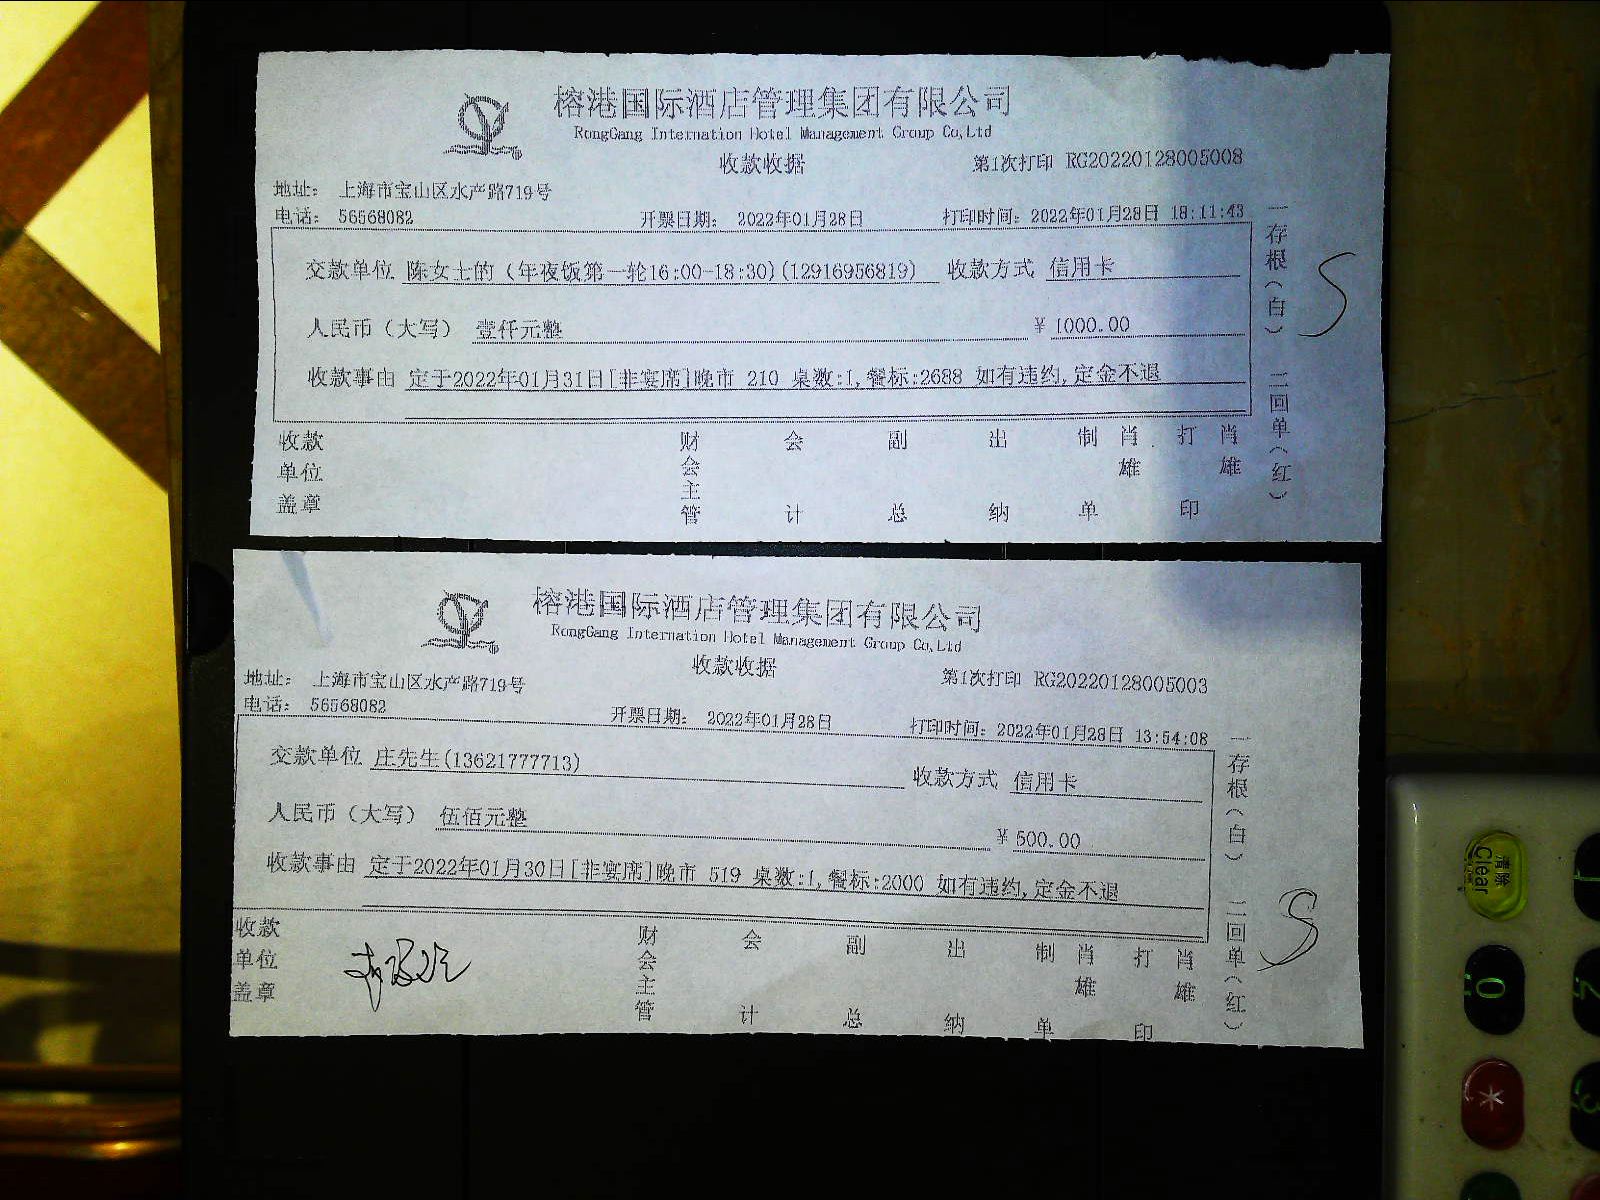 榕港国际酒店管理集团有限公司
RongGang Internation Hotel Management Group Co,Ltd
收款收据
第1次打印 RG20220128005008
地址： 上海市宝山区水产路719号
电话： 56568082 开票日期： 2022年01月28日 打印时间：2022年01月28日 18:11:43
交款单位 陈女士的（年夜饭第一轮16:00-18:30)(12916956819) 收款方式 信用卡
人民币（大写） 壹仟元整 ￥ 1000.00
收款事由 定于2022年01月31日[非宴席]晚市 210 桌数:1,餐标:2688 如有违约,定金不退
收款单位盖章 财会主管 会计 副总 出纳 制单 肖雄 打印 肖雄
一存根（白） 二回单（红）
S
榕港国际酒店管理集团有限公司
RongGang Internation Hotel Management Group Co,Ltd
收款收据
第1次打印 RG20220128005003
地址： 上海市宝山区水产路719号
电话： 56568082 开票日期： 2022年01月28日 打印时间：2022年01月28日 13:54:08
交款单位 庄先生(13621777713) 收款方式 信用卡
人民币（大写） 伍佰元整 ￥ 500.00
收款事由 定于2022年01月30日[非宴席]晚市 519 桌数:1,餐标:2000 如有违约,定金不退
收款单位盖章 财会主管 会计 副总 出纳 制单 肖雄 打印 肖雄
一存根（白） 二回单（红）
S
清除
Clear
1
0
2
*
3